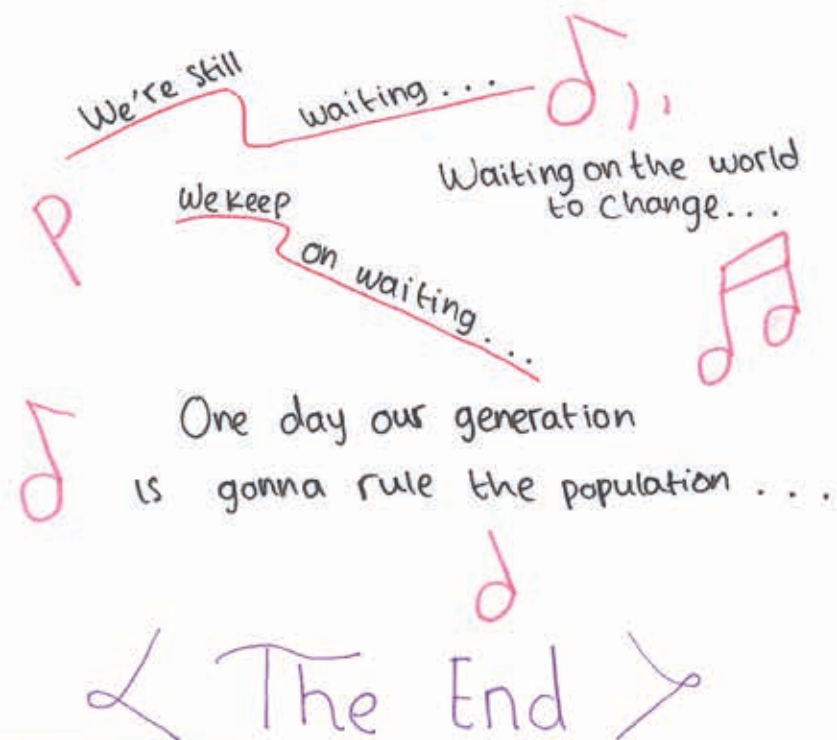 We're still waiting...
Waiting on the world
to change...
We keep on waiting...
One day our generation
is gonna rule the population...
The End